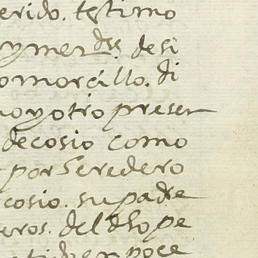 erido. testimo
ymer dss. de si
omorcillo. di
noy otro presen
de cosio como
por Eredero
cosio. su padre
eros. del dho pe
poce